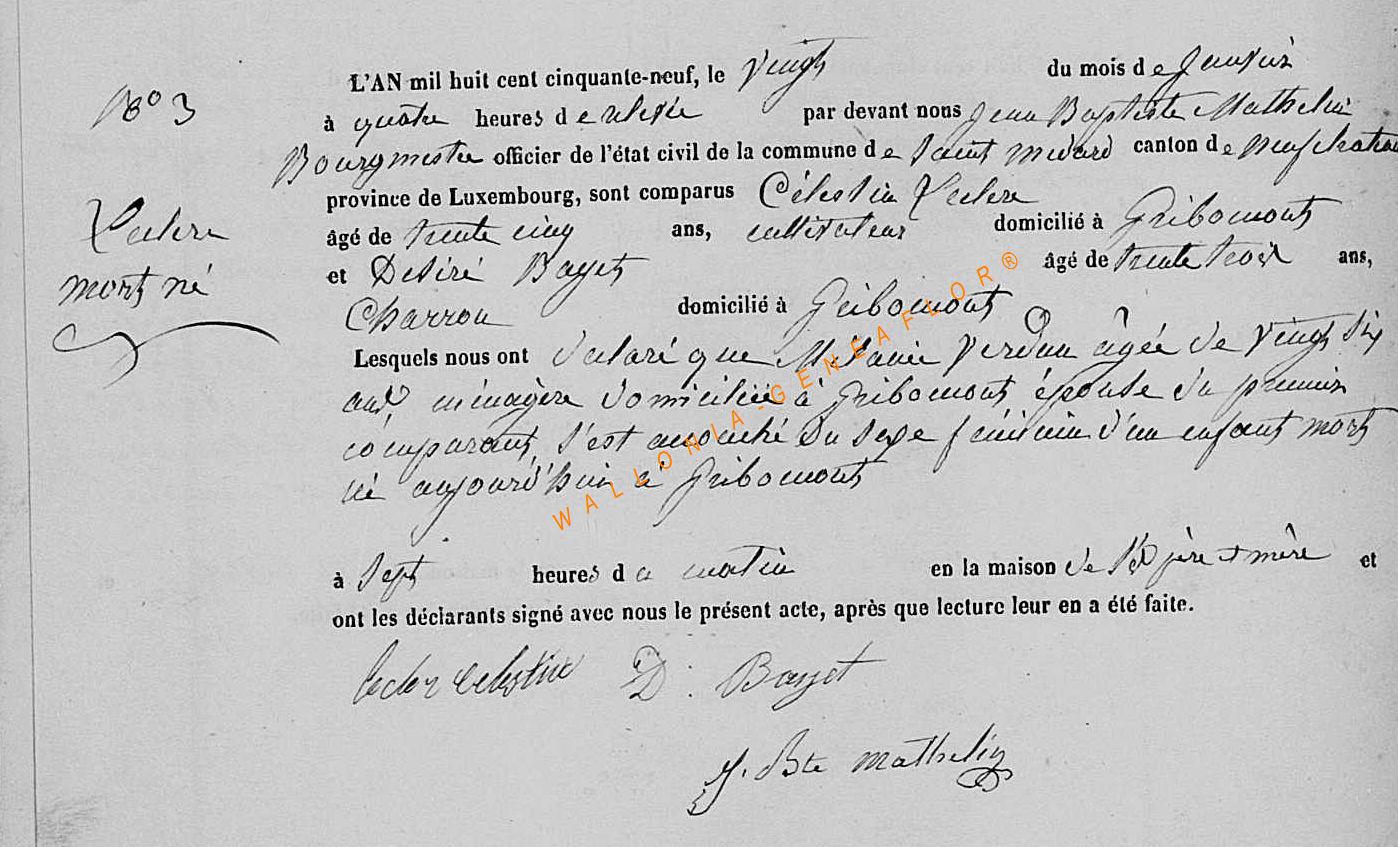 N° 3
L'AN mil huit cent cinquante-neuf, le vingt du mois de Janvier
à quatre heures de relevée par devant nous Jean Baptiste Mathelin
Bourgmestre officier de l'état civil de la commune de Saint Médard canton de Neufchateau
province de Luxembourg, sont comparus Célestin Leclere
Leclere
mort né
âgé de trente cinq ans, cultivateur domicilié à Gribomont
et Désiré Bayet âgé de trente trois ans,
Charron domicilié à Gribomont
Lesquels nous ont déclaré que Mélanie Verdun âgée de vingt six
ans, ménagère domiciliée à Gribomont épouse du premier
comparant, s'est accouché du sexe féminin d'un enfant mort
né aujourd'hui à Gribomont
à sept heures du matin en la maison de ses père et mère et
ont les déclarants signé avec nous le présent acte, après que lecture leur en a été faite.
Celestin D. Bayet
J. Bte Mathelin
WALLONIA-GENEAFLOR®